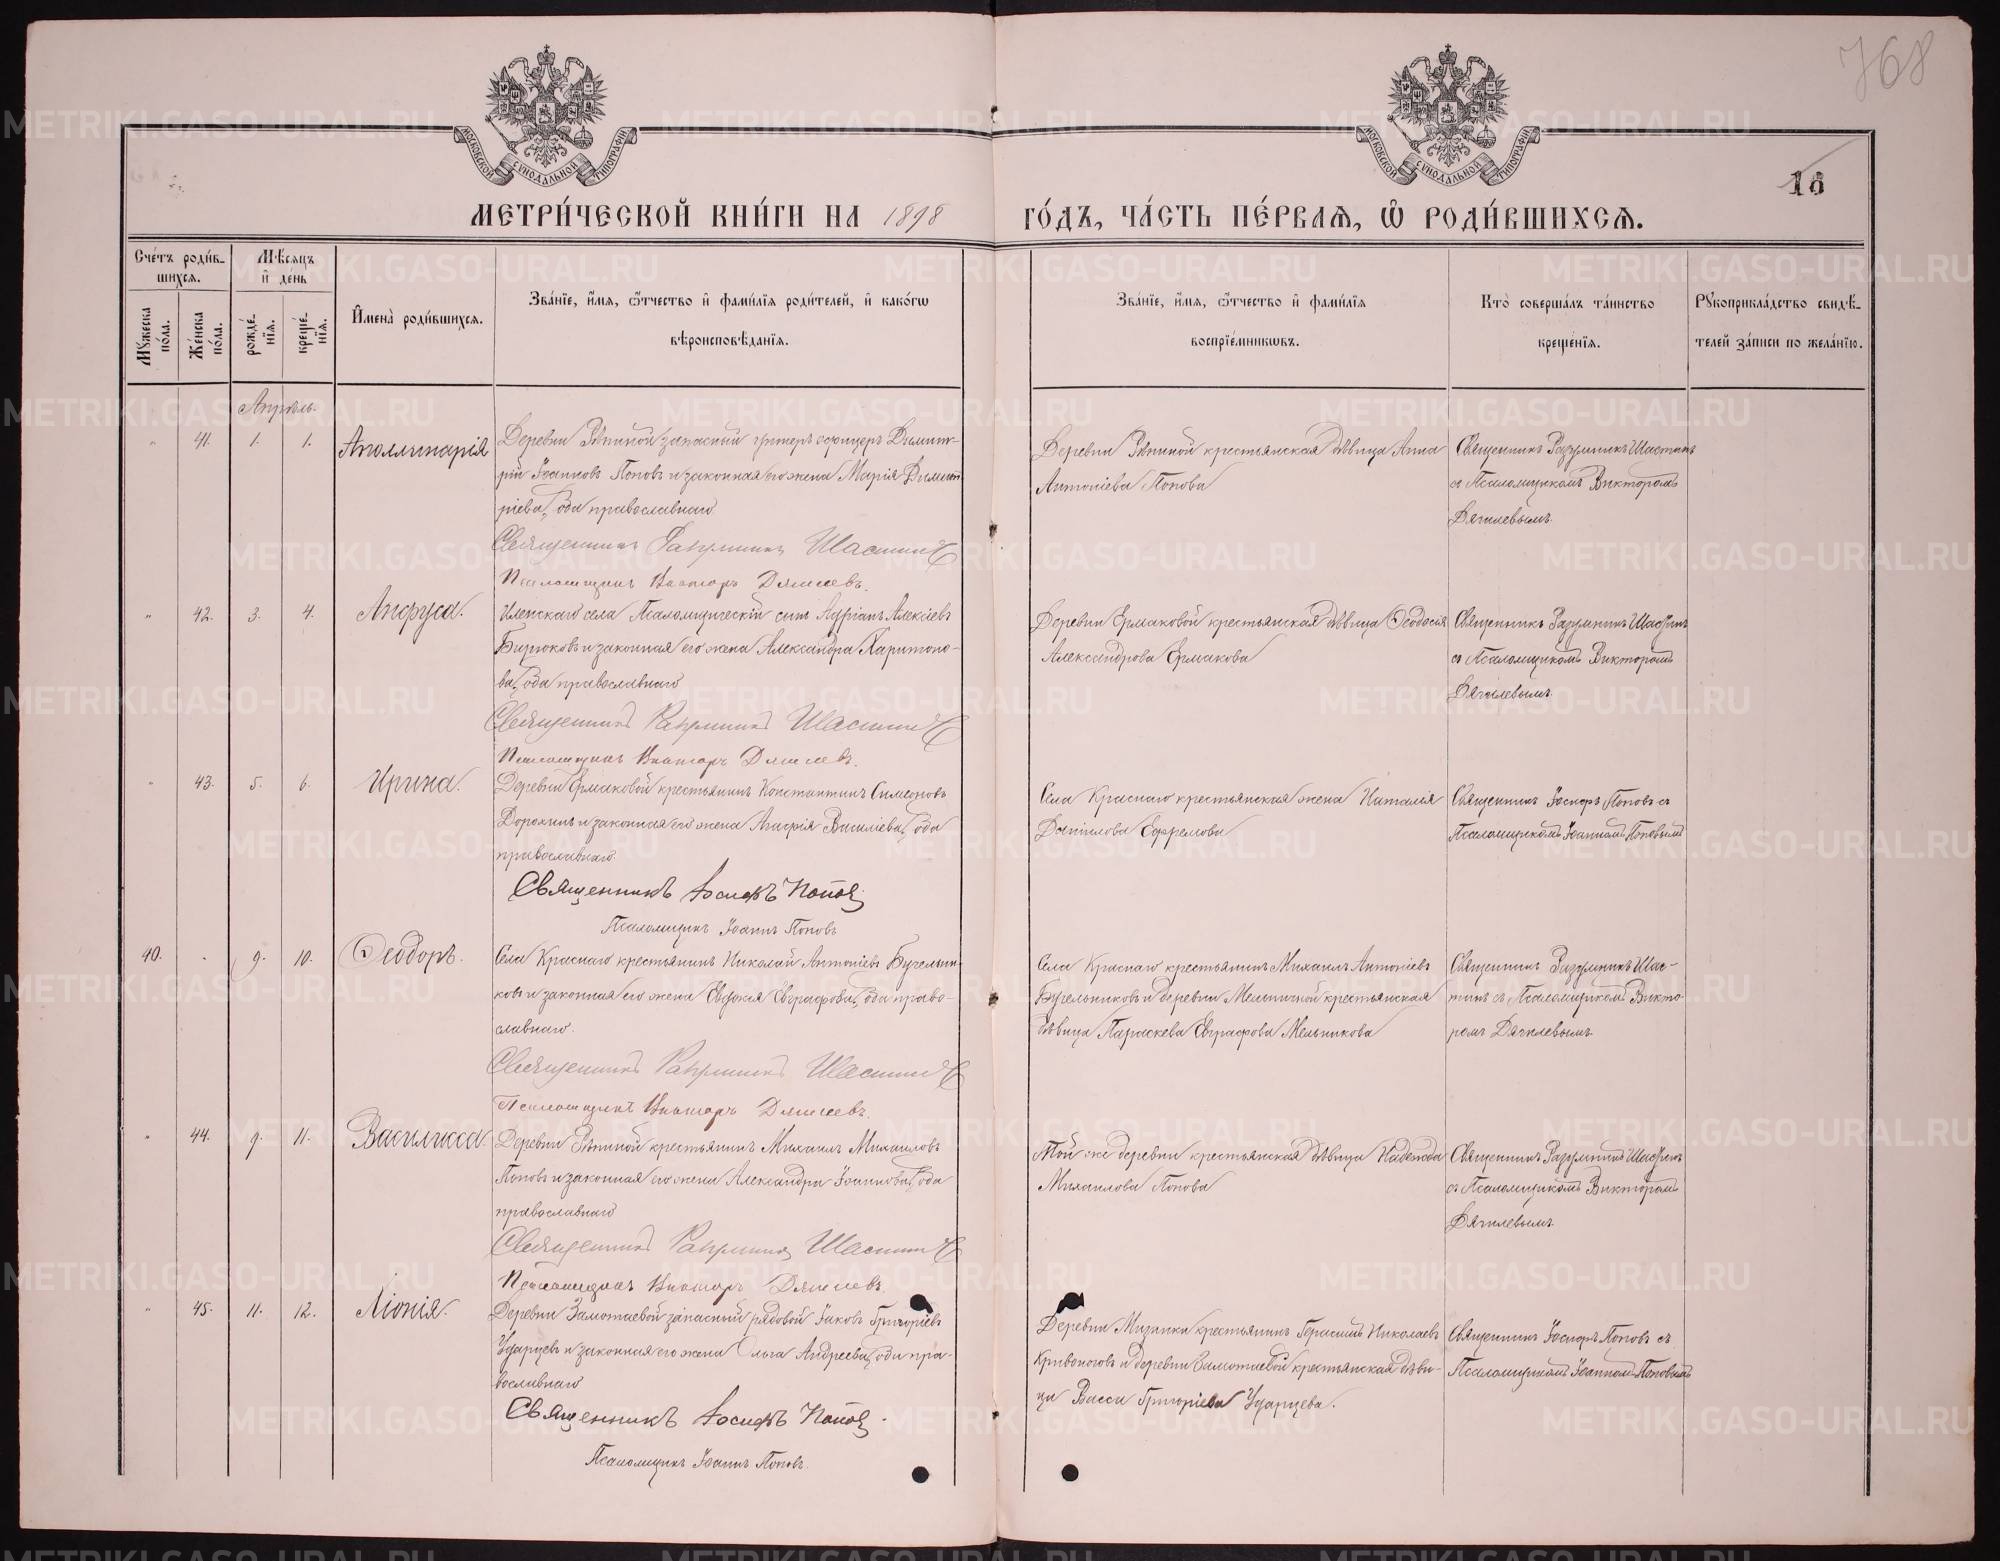 768
МОСКОВСКОЙ СѴНОДАЛЬНОЙ ТИПОГРАФІИ
МОСКОВСКОЙ СѴНОДАЛЬНОЙ ТИПОГРАФІИ
18
МЕТРИ́ЧЕСКОЙ КНИ́ГИ НА 1898 ГО́ДЪ, ЧА́СТЬ ПЕ́РВАѦ, Ѡ РОДИ́ВШИХСѦ.
Сче́тъ роди́в-
шихсѧ.
Мѣ́сѧцъ
и҆ де́нь
Мꙋ́жеска по́ла.
Же́нска по́ла.
рожде́-
нїѧ.
креще́-
нїѧ.
И҆мена̀ роди́вшихсѧ.
Зва́нїе, и҆́мѧ, ѻ҆́тчество и҆ фами́лїѧ роди́телей, и҆ како́гѡ
вѣроисповѣ́данїѧ.
Зва́нїе, и҆́мѧ, ѻ҆́тчество и҆ фами́лїѧ
воспрїе́мникѡвъ.
Кто̀ соверша́лъ та́инство
креще́нїѧ.
Рꙋкоприкла́дство свидѣ́-
телей за́писи по жела́нїю.
Апрѣль.
" 41. 1. 1. Аполлинарія
Деревни Рѣпиной запасный унтеръ офицеръ Димит-
рій Іоанновъ Поповъ и законная его жена Марія Димит-
ріева, оба православнаго.
Священникъ Разумникъ Шастинъ
Псаломщикъ Викторъ Дягилевъ.
Деревни Рѣпиной крестьянская дѣвица Анна
Антоніева Попова
Священникъ Разумникъ Шастинъ
съ Псаломщикомъ Викторомъ
Дягилевымъ.
" 42. 3. 4. Анфуса.
Иленскаго села Псаломщическій сынъ Адріанъ Алексіевъ
Бирюковъ и законная его жена Александра Харитоно-
ва, оба православнаго
Священникъ Разумникъ Шастинъ
Псаломщикъ Викторъ Дягилевъ.
Деревни Ермаковой крестьянская дѣвица Ѳеодосія
Александрова Ермакова
Священникъ Разумникъ Шастинъ
съ Псаломщикомъ Викторомъ
Дягилевымъ.
" 43. 5. 6. Ирина.
Деревни Ермаковой крестьянинъ Константинъ Симеоновъ
Дорохинъ и законная его жена Агафія Василіева, оба
православнаго.
Священникъ Іосифъ Поповъ
Псаломщикъ Іоаннъ Поповъ
Села Краснаго крестьянская жена Наталія
Данілова Ефремова
Священникъ Іосифъ Поповъ съ
Псаломщикомъ Іоанномъ Поповымъ
40. " 9. 10. Ѳеодоръ.
Села Краснаго крестьянинъ Николай Антоніевъ Бучельни-
ковъ и законная его жена Евдокія Евграфова, оба право-
славнаго.
Священникъ Разумникъ Шастинъ
Псаломщикъ Викторъ Дягилевъ.
Села Краснаго крестьянинъ Михаилъ Антоніевъ
Бучельниковъ и деревни Мельничной крестьянская
дѣвица Параскева Евграфова Мельникова
Священникъ Разумникъ Шас-
тинъ съ Псаломщикомъ Викто-
ромъ Дягилевымъ.
" 44. 9. 11. Василисса.
Деревни Рѣпиной крестьянинъ Михаилъ Михаиловъ
Поповъ и законная его жена Александра Іоаннова, оба
православнаго
Священникъ Разумникъ Шастинъ
Псаломщикъ Викторъ Дягилевъ.
Той же деревни крестьянская дѣвица Надежда
Михаилова Попова
Священникъ Разумникъ Шастинъ
съ Псаломщикомъ Викторомъ
Дягилевымъ.
" 45. 11. 12. Ліонія.
Деревни Замотаевой запасный рядовой Іаковъ Григоріевъ
Ударцевъ и законная его жена Ольга Андреева, оба пра-
вославнаго
Священникъ Іосифъ Поповъ.
Псаломщикъ Іоаннъ Поповъ.
Деревни Мизинки крестьянинъ Герасимъ Николаевъ
Кривоноговъ и деревни Замотаевой крестьянская дѣви-
ца Васса Григоріева Ударцева.
Священникъ Іосифъ Поповъ съ
Псаломщикомъ Іоанномъ Поповымъ
METRIKI.GASO-URAL.RU